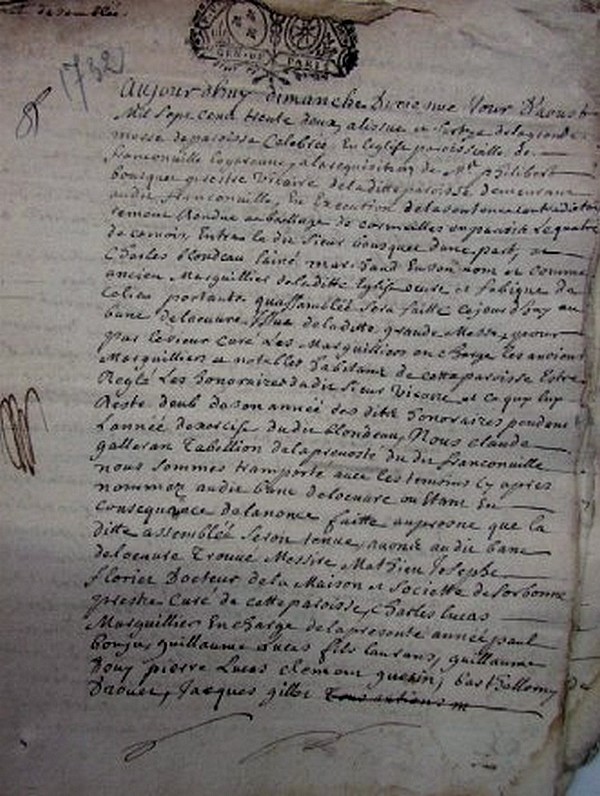 de
1732
GEN. DE PARIS
Aujourdhuy dimanche Dixiesme Jour Daoust
Mil Sept Cent trente deux, a lissue et Sortye de la grande
messe de paroisse Celebrée En leglise paroissialle de
franconville lagarenne, a la requisition de Mre philibert
bousquet prestre Vicaire de la ditte paroisse demeurant
audit franconville, En Execution de la sentence contradictoi
rement Rendue au bailliage de cormeilles en parisis le quatre
de ce mois, Entre le dit Sieur bousquet d'une part, et
Charles blondeau laisné marchand En son nom et comme
ancien Marguillier de la ditte Eglise oeuvre et fabrique de
ce lieu portante quassemblée Sera faitte cejourdhuy au
banc de loeuvre, Issue de la ditte grande Messe, pour
par le sieur curé Les Marguilliers en charge les anciens
Marguilliers et notables habitans de cette paroisse Estre
Reglé Les honoraires du dit Sieur Vicaire et ce quy luy
Reste deub de son année des dits honoraires pendant
Lannée dexercise du dit blondeau, Nous claude
galleran Tabellion de la prevosté du dit franconville
nous sommes transporté avec les temoins cy apres
nommez au dit banc de loeuvre ou Etant En
consequence de lanonce faitte au prosne que la
ditte assemblée seroit tenue, avons au dit banc
de loeuvre Trouvé Messire Mathieu Josephe
florier Docteur de la Maison et Societté de Sorbonne
prestre Curé de cette paroisse, Charles Lucas
Marguillier En charge de la presente année, paul
bonjus, guillaume Lucas fils laurans, guillaume
Douy pierre Lucas clement guerin, barthellemy
Drouet, Jacques gillet Tous antiens m